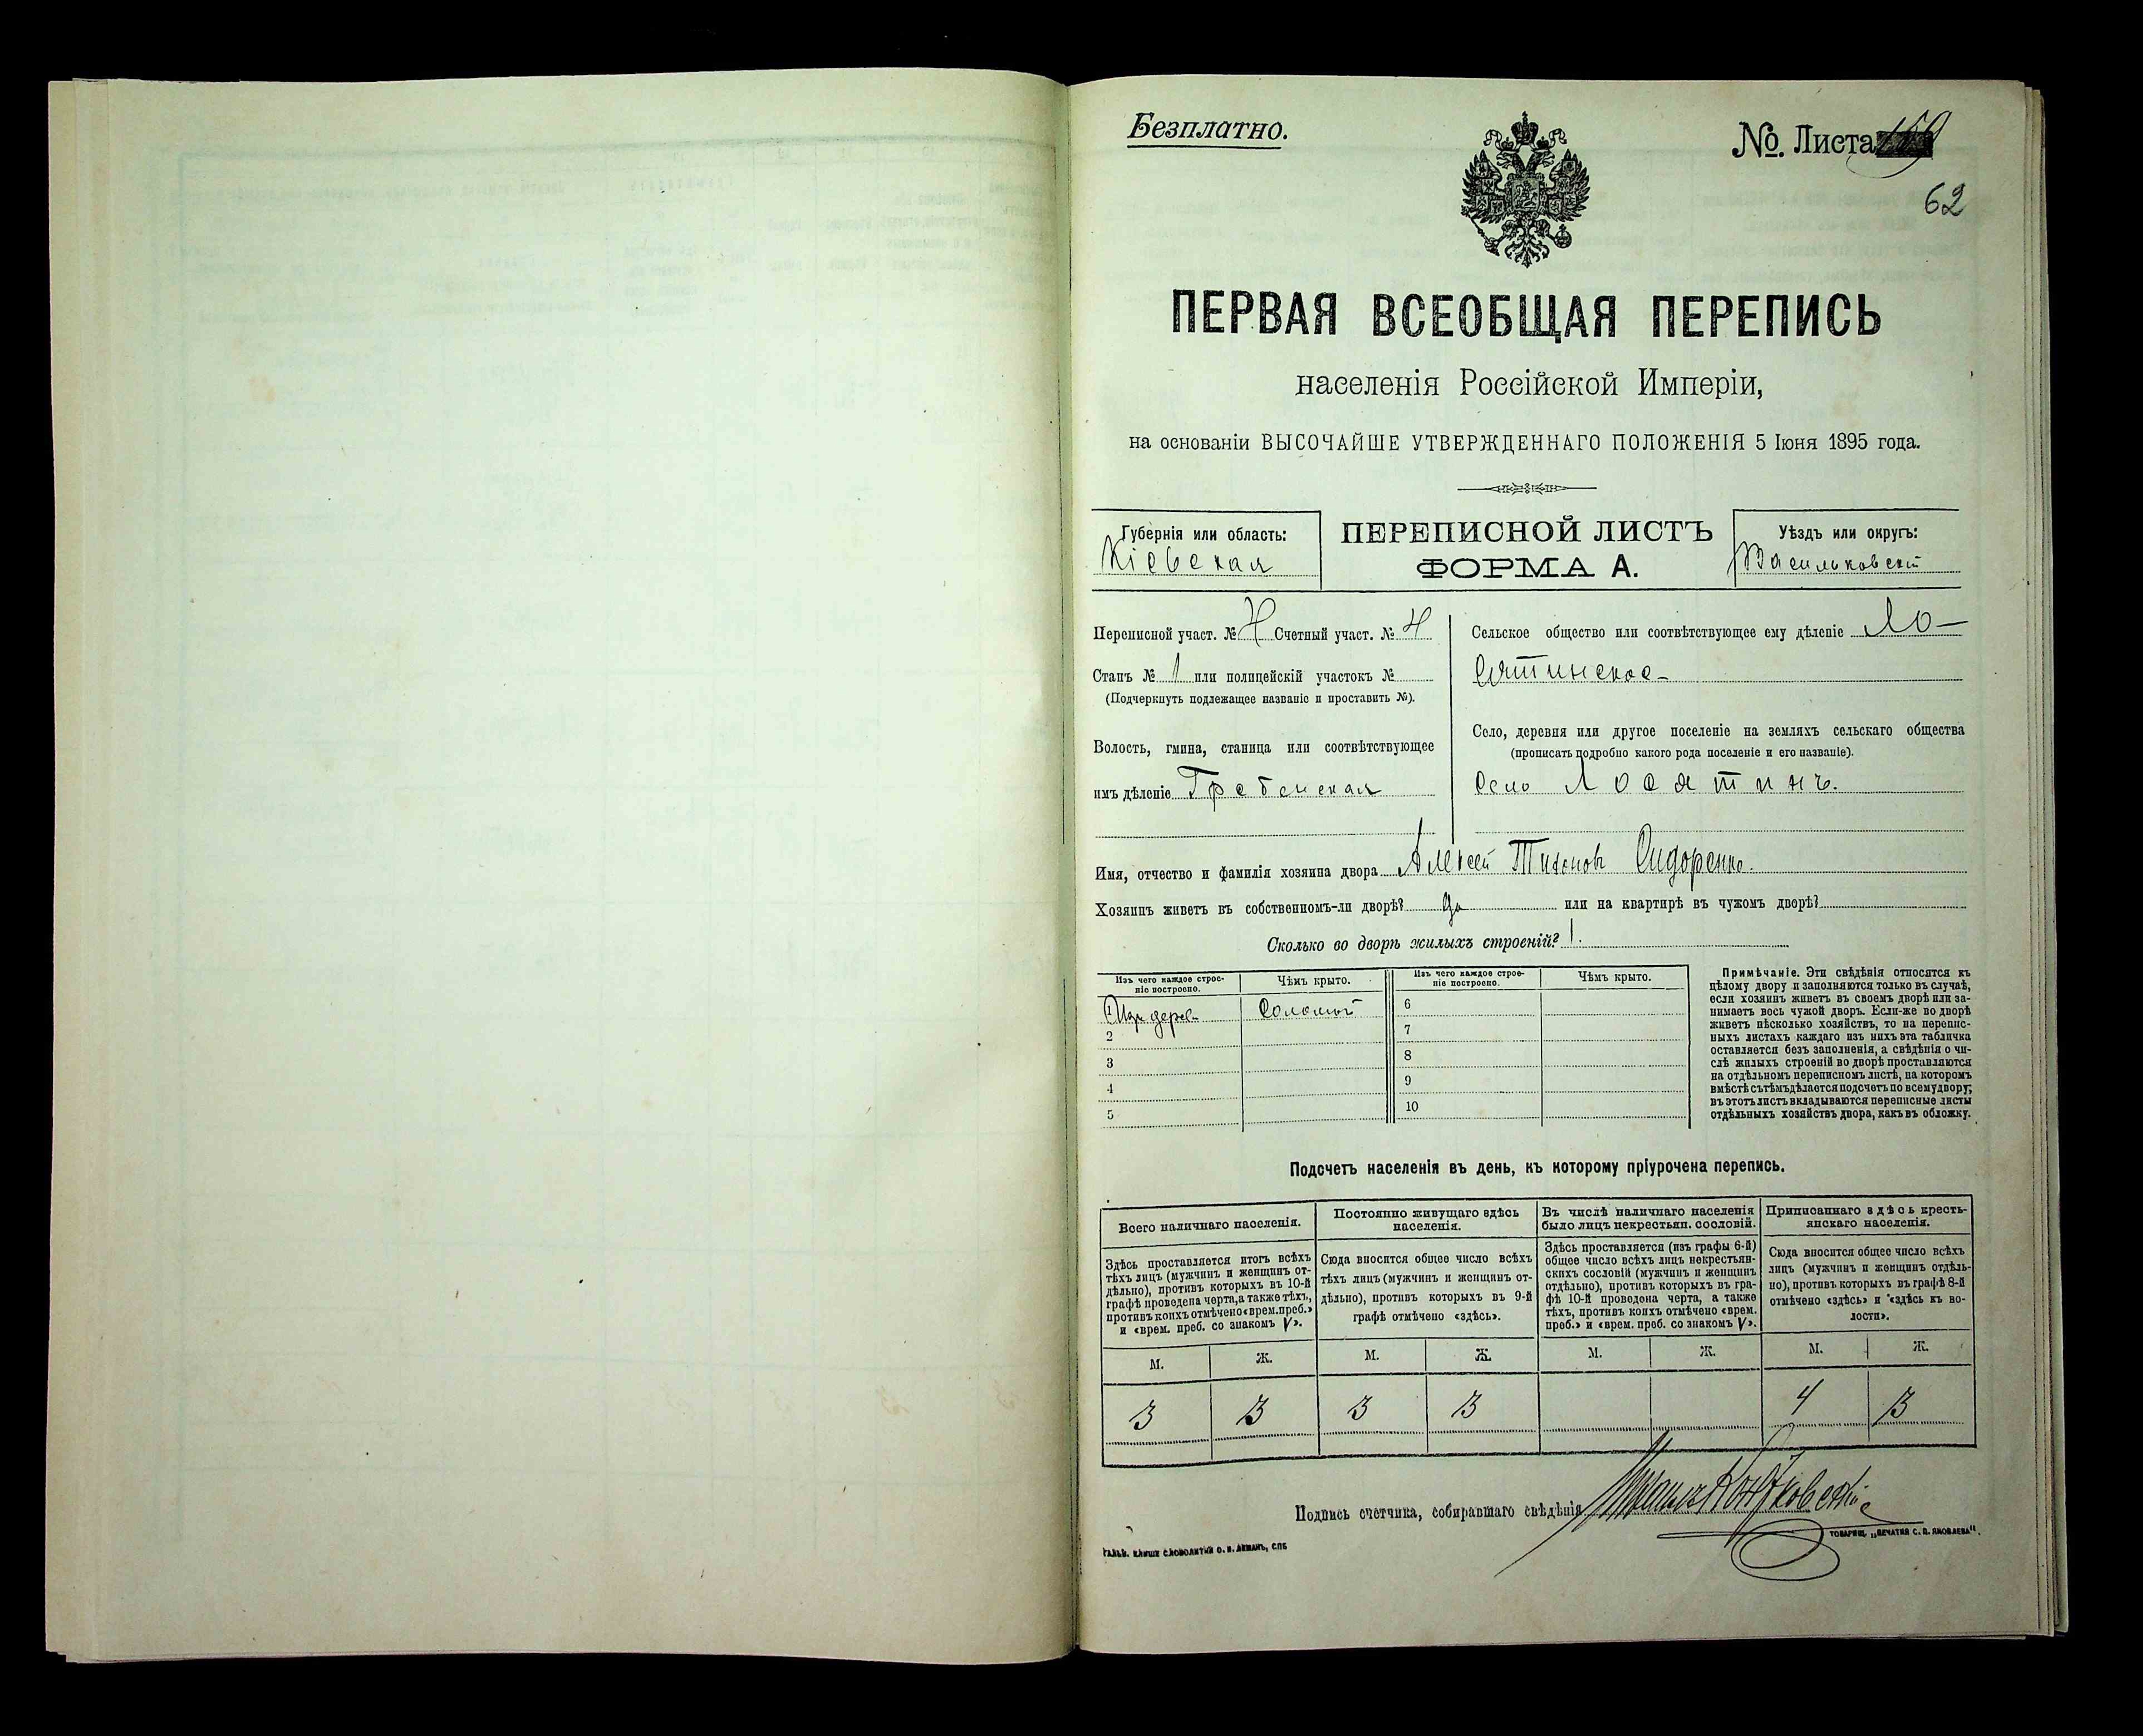 Безплатно.
№. Листа 159
62
ПЕРВАЯ ВСЕОБЩАЯ ПЕРЕПИСЬ
населенія Россійской Имперіи,
на основаніи ВЫСОЧАЙШЕ УТВЕРЖДЕННАГО ПОЛОЖЕНІЯ 5 Іюня 1895 года.
Губернія или область:
Кіевская
ПЕРЕПИСНОЙ ЛИСТЪ
ФОРМА А.
Уѣздъ или округъ:
Васильковскій
Переписной участ. № 4 Счетный участ. № 4
Станъ № 1 или полицейскій участокъ №
(Подчеркнуть подлежащее названіе и проставить №).
Волость, гмина, станица или соотвѣтствующее
имъ дѣленіе Гребенская
Сельское общество или соотвѣтствующее ему дѣленіе Ло-
сятинское
Село, деревня или другое поселеніе на земляхъ сельскаго общества
(прописать подробно какого рода поселеніе и его названіе).
Село Лосятинъ.
Имя, отчество и фамилія хозяина двора Алексей Тихоновъ Сидоренко.
Хозяинъ живетъ въ собственномъ-ли дворѣ? да или на квартирѣ въ чужомъ дворѣ?
Сколько во дворѣ жилыхъ строеній? 1.
Изъ чего каждое строе-
ніе построено.
Чѣмъ крыто.
Изъ чего каждое строе-
ніе построено.
Чѣмъ крыто.
1 Изъ дерев. Соломой 6
2 7
3 8
4 9
5 10
Примѣчаніе. Эти свѣдѣнія относятся къ
цѣлому двору и заполняются только въ случаѣ,
если хозяинъ живетъ въ своемъ дворѣ или за-
нимаетъ весь чужой дворъ. Если-же во дворѣ
живетъ нѣсколько хозяйствъ, то на перепис-
ныхъ листахъ каждаго изъ нихъ эта табличка
оставляется безъ заполненія, а свѣдѣнія о чи-
слѣ жилыхъ строеній во дворѣ проставляются
на отдѣльномъ переписномъ листѣ, на которомъ
вмѣстѣ съ тѣмъ дѣлается подсчетъ по всему двору;
въ этотъ листъ вкладываются переписные листы
отдѣльныхъ хозяйствъ двора, какъ въ обложку.
Подсчетъ населенія въ день, къ которому пріурочена перепись.
Всего наличнаго населенія.
Здѣсь проставляется итогъ всѣхъ
тѣхъ лицъ (мужчинъ и женщинъ от-
дѣльно), противъ которыхъ въ 10-й
графѣ проведена черта, а также тѣхъ,
противъ коихъ отмѣчено «врем. преб.»
и «врем. преб. со знакомъ V».
Постоянно живущаго здѣсь
населенія.
Сюда вносится общее число всѣхъ
тѣхъ лицъ (мужчинъ и женщинъ от-
дѣльно), противъ которыхъ въ 9-й
графѣ отмѣчено «здѣсь».
Въ числѣ наличнаго населенія
было лицъ некрестьян. сословій.
Здѣсь проставляется (изъ графы 6-й)
общее число всѣхъ лицъ некрестьян-
скихъ сословій (мужчинъ и женщинъ
отдѣльно), противъ которыхъ въ гра-
фѣ 10-й проведена черта, а также
тѣхъ, противъ коихъ отмѣчено «врем.
преб.» и «врем. преб. со знакомъ V».
Приписаннаго здѣсь кресть-
янскаго населенія.
Сюда вносится общее число всѣхъ
лицъ (мужчинъ и женщинъ отдѣль-
но), противъ которыхъ въ графѣ 8-й
отмѣчено «здѣсь» и «здѣсь къ во-
лости».
М. Ж. М. Ж. М. Ж. М. Ж.
3 3 3 3 4 3
Подпись счетчика, собиравшаго свѣдѣнія
ТОВАРИЩ. „ПЕЧАТНЯ С. П. ЯКОВЛЕВА“.